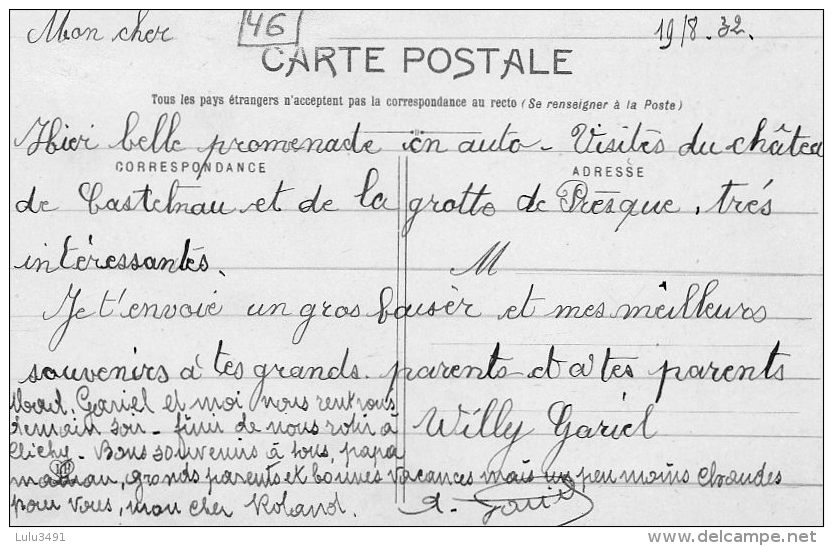 Mon cher 46 19/8.32.
CARTE POSTALE
Tous les pays étrangers n'acceptent pas la correspondance au recto (Se renseigner à la Poste)
Hier belle promenade en auto - Visités du châtea
CORRESPONDANCE ADRESSE
de Castelnau et de la grotte de Presque, trés
intéressantés.
M
Je t'envoie un gros baiser et mes meilleurs
souvenirs à tes grands parents et à tes parents
Gariel et moi nous rentrons
demain soir - finir de nous rotir à
Willy Gariel
Clichy - Bons souvenirs à tous, papa
maman, grands parents et bonnes vacances mais un peu moins chaudes
pour vous, mon cher Roland.
Lulu3491
delcampe.net